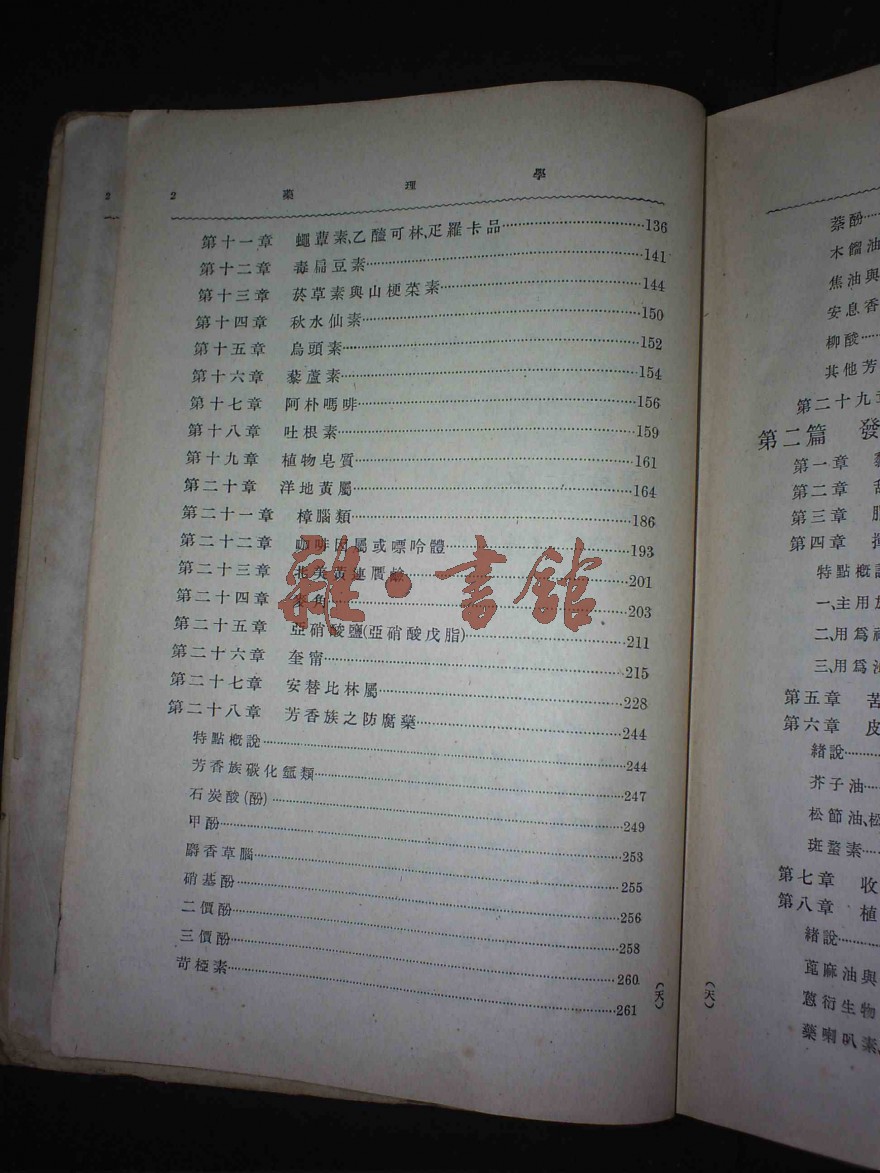 2 藥 理 學
第十一章 蠅蕈素、乙醯可林、疋羅卡品……136
第十二章 毒扁豆素……141
第十三章 菸草素與山梗菜素……144
第十四章 秋水仙素……150
第十五章 烏頭素……152
第十六章 藜蘆素……154
第十七章 阿朴嗎啡……156
第十八章 吐根素……159
第十九章 植物皂質……161
第二十章 洋地黃屬……164
第二十一章 樟腦類……186
第二十二章 咖啡因屬或嘌呤體……193
第二十三章 北美黃連贋鹼……201
第二十四章 麥角……203
第二十五章 亞硝酸鹽(亞硝酸戊脂)……211
第二十六章 奎甯……215
第二十七章 安替比林屬……228
第二十八章 芳香族之防腐藥……244
特點概說……244
芳香族碳化氫類……247
石炭酸(酚)……249
甲酚……253
麝香草腦……255
硝基酚……256
二價酚……258
三價酚……260
苛椏素……261
(天)
雜·書館
2
萘酚……
木餾油
焦油與
安息香
柳酸……
其他芳
第二十九章
第二篇 發
第一章
第二章
第三章
第四章
特點概說
一、主用於
二、用爲
三、用爲
第五章 苦
第六章 皮
緒說……
芥子油……
松節油、松
斑蝥素……
第七章 收
第八章 植
緒說……
蓖麻油與
蒽衍生物
藥喇叭素、
(天)